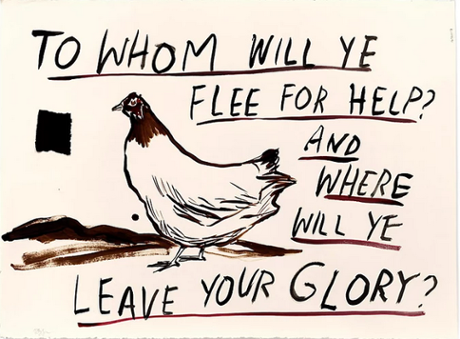 TO WHOM WILL YE
FLEE FOR HELP?
AND
WHERE
WILL YE
LEAVE YOUR GLORY?